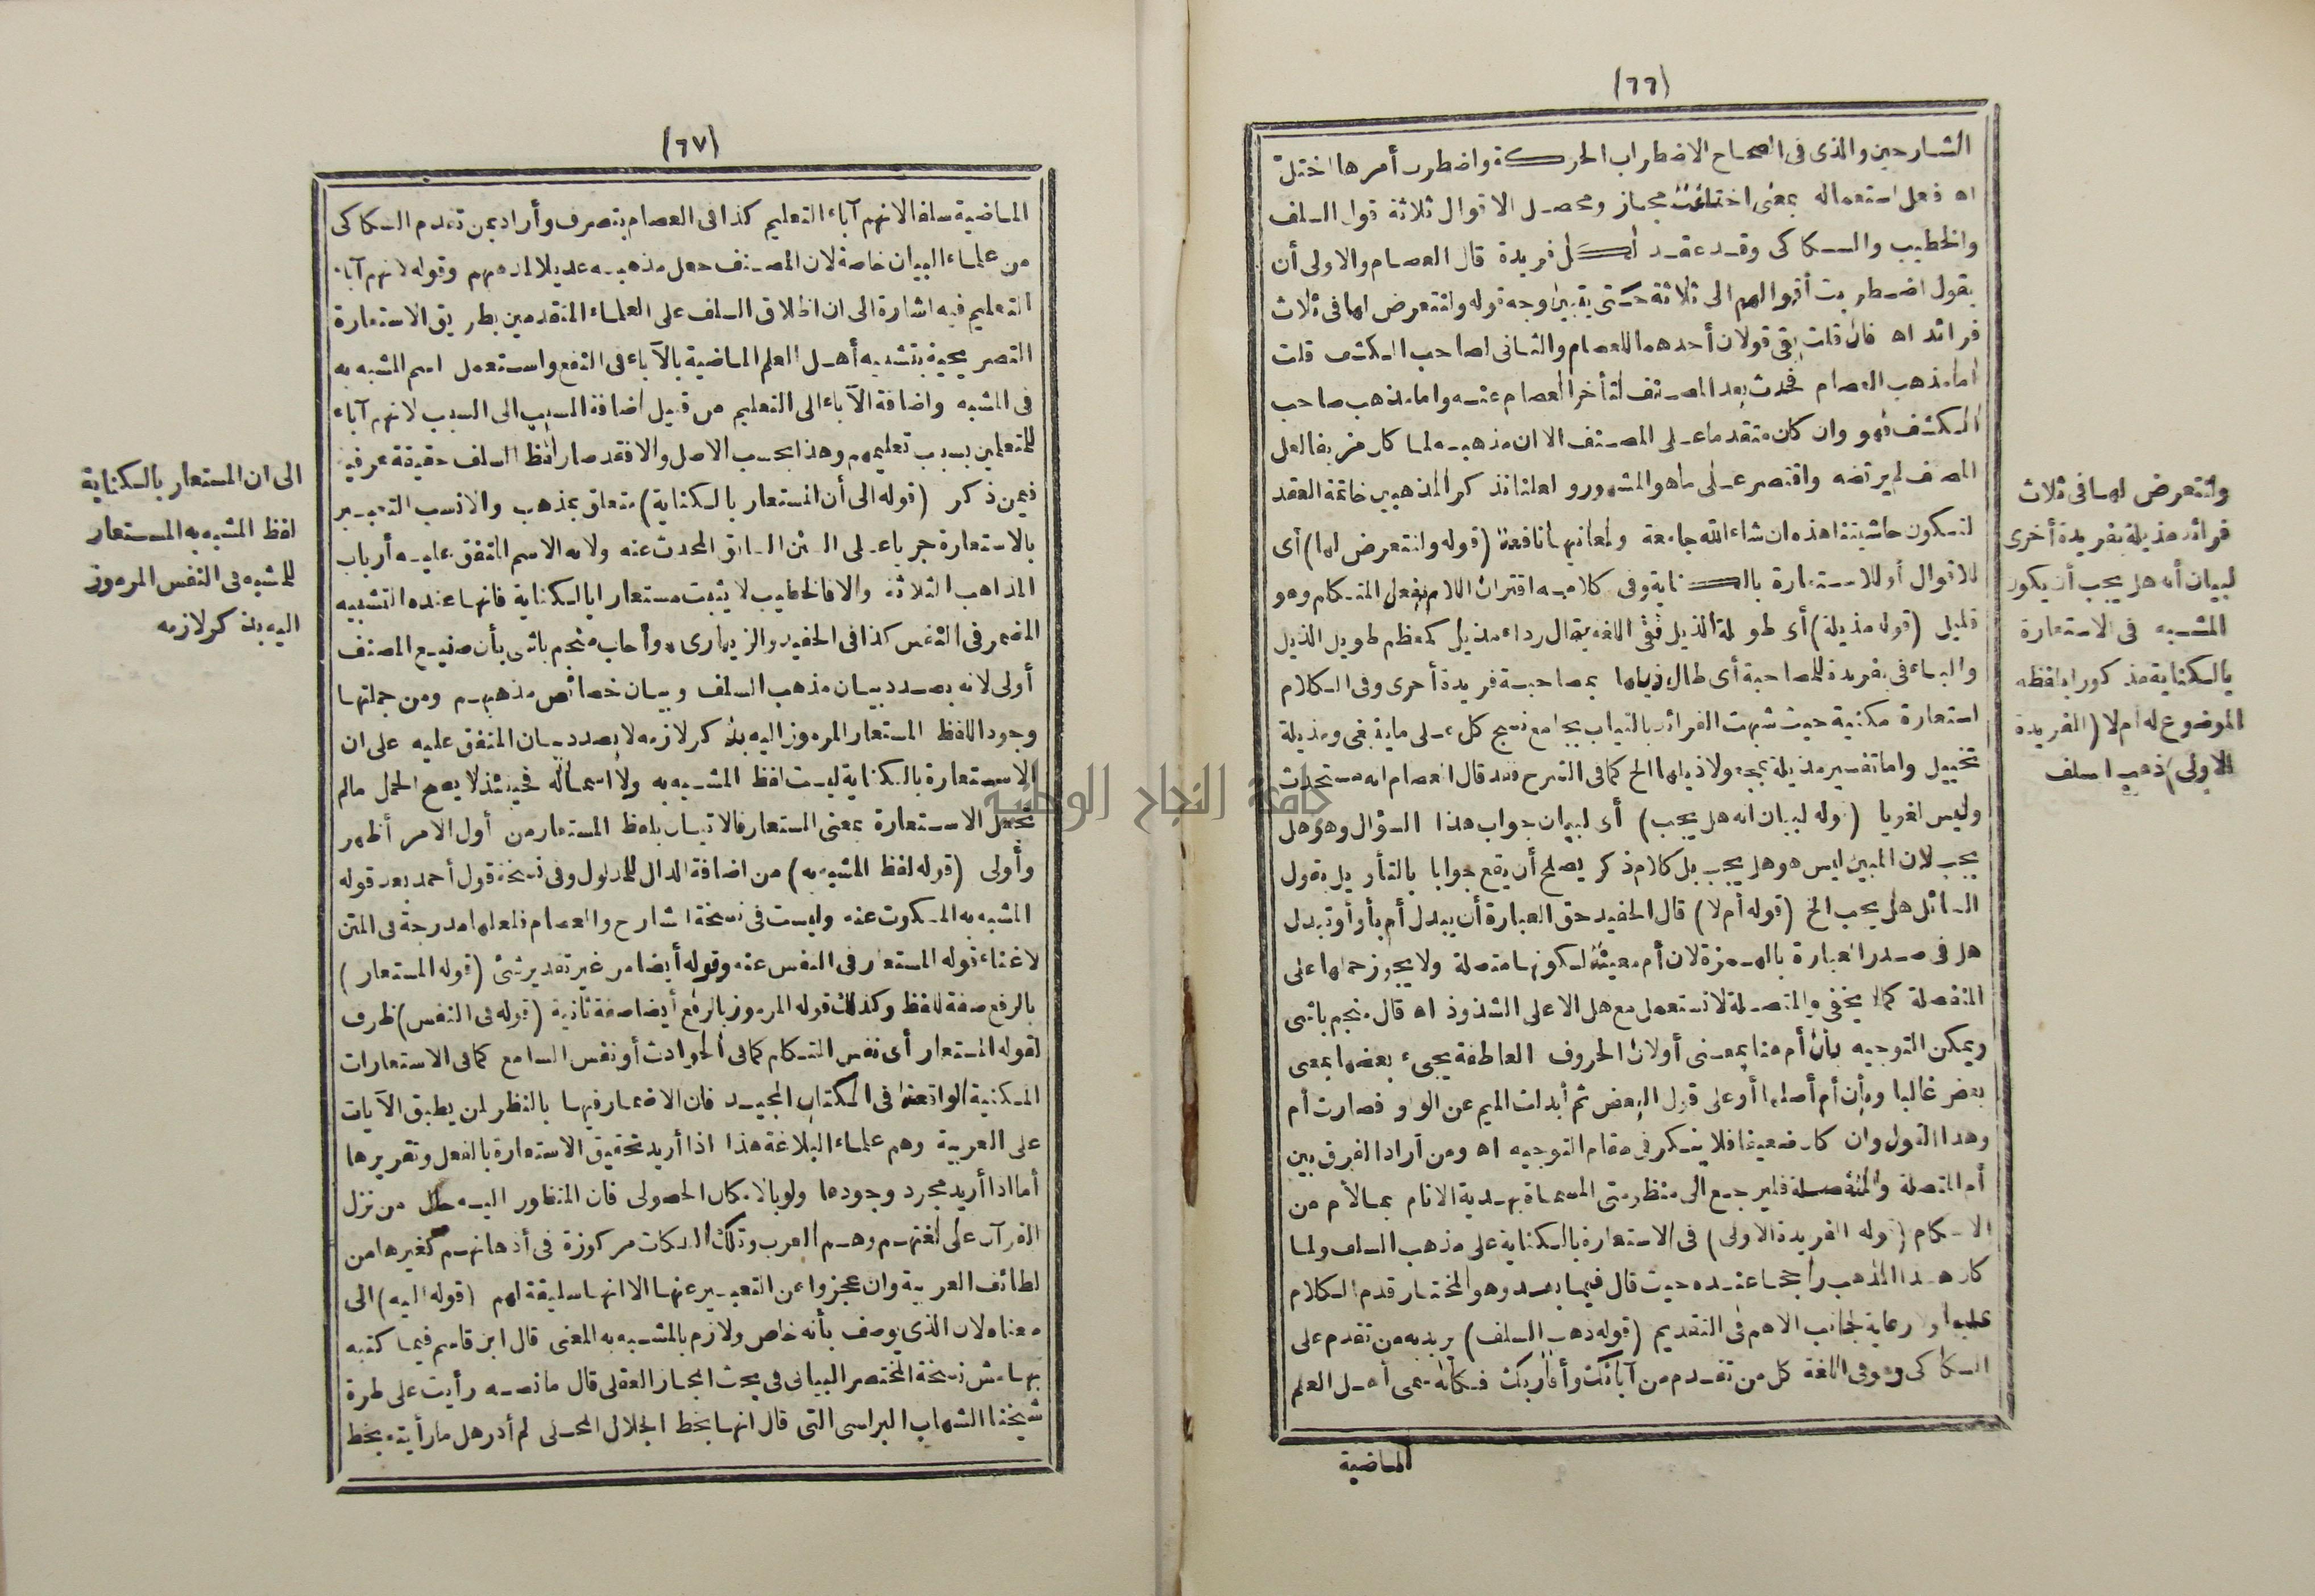 (٦٦)
الشارحين والذى فى الصحاح الاضطراب الحركة واضطرب أمرها اختل
اه فعل استعماله بمعنى اختلفت مجاز ومحصل الاقوال ثلاثة قول السلف
والخطيب والسكاكى وقد عقد لكل فريدة قال العصام والاولى أن
يقول اضطربت أقوالهم الى ثلاثة حتى يتبين وجه قوله ولنتعرض لها فى ثلاث
فرائد اه فان قلت بقى قولان أحدهما للعصام والثانى لصاحب الكشف قلت
أما مذهب العصام فحدث بعد المصنف لتأخر العصام عنه وأما مذهب صاحب
الكشف فهو وان كان متقدما على المصنف الا ان مذهبه لما كان مزيفا لعل
المصنف لم يرتضه واقتصر على ما هو المشهور ولعلنا نذكر المذهبين خاتمة العقد
لتكون حاشيتنا هذه ان شاء الله جامعة ولمعانيها نافعة (قوله ولنتعرض لها) أى
للاقوال أو للاستعارة بالكناية وفى كلامه اقتران اللام بفعل المتكلم وهو
قليل (قوله مذيلة) أى طويلة الذيل ففى اللغة يقال رداء مذيل كمعظم طويل الذيل
والباء فى بفريدة للمصاحبة أى طال ذيلها بمصاحبة فريدة أخرى وفى الكلام
استعارة مكنية حيث شبهت الفرائد بالثياب بجامع نسج كل على ما ينبغى ومذيلة
تخييل واما تفسير مذيلة بمجعولا ذيلها الخ كما فى الشرح فقد قال العصام انه مستحدث
وليس لغويا (قوله لبيان انه هل يجب) أى لبيان جواب هذا السؤال وهو هل
يجب لان المبين ليس هو هل يجب بل كلام ذكر يصلح أن يقع جوابا بالتأويل بقول
السائل هل يجب الخ (قوله أم لا) قال الحفيد حق العبارة أن يبدل أم بأو أو تبدل
هل فى صدر العبارة بالهمزة لان أم معينة لكونها متصلة ولا يجوز حملها على
المنفصلة كما لا يخفى والمتصلة لا تستعمل مع هل الا على الشذوذ اه قال منجم باشى
ويمكن التوجيه بأن أم هنا بمعنى أو لان الحروف العاطفة يجىء بعضها بمعنى
بعض غالبا وبأن أم أصلها أو على قول البعض ثم أبدلت الميم عن الواو فصارت أم
وهذا القول وان كان ضعيفا فلا ينكر فى مقام التوجيه اه ومن أراد الفرق بين
أم المتصلة والمنفصلة فليرجع الى منظومتى المسماة بهدية الانام بما لأم من
الاحكام (قوله الفريدة الاولى) فى الاستعارة بالكناية على مذهب السلف ولما
كان هذا المذهب راجحا عنده حيث قال فيما بعد وهو المختار قدم الكلام
عليه أولا رعاية لجانب الاهم فى التقديم (قوله ذهب السلف) يريد به من تقدم على
السكاكى وهو فى اللغة كل من تقدم من آبائك وأقاربك فكأنه سمى أهل العلم
الماضية
ولنتعرض لها فى ثلاث
فرائد مذيلة بفريدة أخرى
لبيان أنه هل يجب أن يكون
المشبه فى الاستعارة
بالكناية مذكورا بلفظه
الموضوع له أم لا (الفريدة
الاولى) ذهب السلف
(٦٧)
الماضية سلفا لانهم آباء التعليم كذا فى العصام بتصرف وأراد بمن تقدم السكاكى
من علماء البيان خاصة لان المصنف جعل مذهبه عديلا لمذهبهم وقوله لانهم آباء
التعليم فيه اشارة الى ان اطلاق السلف على العلماء المتقدمين بطريق الاستعارة
التصريحية بتشبيه أهل العلم الماضية بالآباء فى النفع واستعمل اسم المشبه به
فى المشبه واضافة الآباء الى التعليم من قبيل اضافة المسبب الى السبب لانهم آباء
للمتعلمين بسبب تعليمهم وهذا بحسب الاصل والا فقد صار لفظ السلف حقيقة عرفية
فيمن ذكر (قوله الى أن المستعار بالكناية) متعلق بمذهب والانسب التعبير
بالاستعارة جريا على المتن السابق المحدث عنه ولانه الاسم المتفق عليه أرباب
المذاهب الثلاثة والا فالخطيب لا يثبت مستعارا بالكناية فانها عنده التشبيه
المضمر فى النفس كذا فى الحفيد والزيمارى وأجاب منجم باشى بأن صنيع المصنف
أولى لانه بصدد بيان مذهب السلف وبيان خصائص مذهبهم ومن جملتها
وجود اللفظ المستعار المرموز اليه بذكر لازمه لا بصدد بيان المتفق عليه على ان
الاستعارة بالكناية ليست لفظ المشبه به ولا استعماله فحينئذ لا يصح الحمل مالم
تجعل الاستعارة بمعنى المستعار فالاتيان بلفظ المستعار من أول الامر أظهر
وأولى (قوله لفظ المشبه به) من اضافة الدال للمدلول وفى نسخة قول أحمد بعد قوله
المشبه به المسكوت عنه وليست فى نسخة الشارح والعصام فلعلها مدرجة فى المتن
لاغناء قوله المستعار فى النفس عنه وقوله أيضا من غير تقدير شئ (قوله المستعار)
بالرفع صفة للفظ وكذلك قوله المرموز بالرفع أيضا صفة ثانية (قوله فى النفس) ظرف
لقوله المستعار أى نفس المتكلم كما فى الحوادث أو نفس السامع كما فى الاستعارات
المكنية الواقعة فى الكتاب المجيد فان الاضمار فيها بالنظر لمن يطبق الآيات
على العربية وهم علماء البلاغة هذا اذا أريد تحقيق الاستعارة بالفعل وتقريرها
أما اذا أريد مجرد وجودها ولو بالامكان الحصولى فان المنظور اليه حال من نزل
القرآن على لغتهم وهم العرب وتلك النكات مركوزة فى أذهانهم كغيرها من
لطائف العربية وان عجزوا عن التعبير عنها الا انها سليقة لهم (قوله اليه) الى
معناه لان الذى يوصف بأنه خاص ولازم بالمشبه به المعنى قال ابن قاسم فيما كتبه
بهامش نسخة المختصر البيانى فى بحث المجاز العقلى قال ما نصه رأيت على طرة
شيخنا الشهاب البرلسى التى قال انها بخط الجلال المحلى لم أدر هل ما رأيته بخط
الى ان المستعار بالكناية
لفظ المشبه به المستعار
للمشبه فى النفس المرموز
اليه بذكر لازمه
جامعة النجاح الوطنية